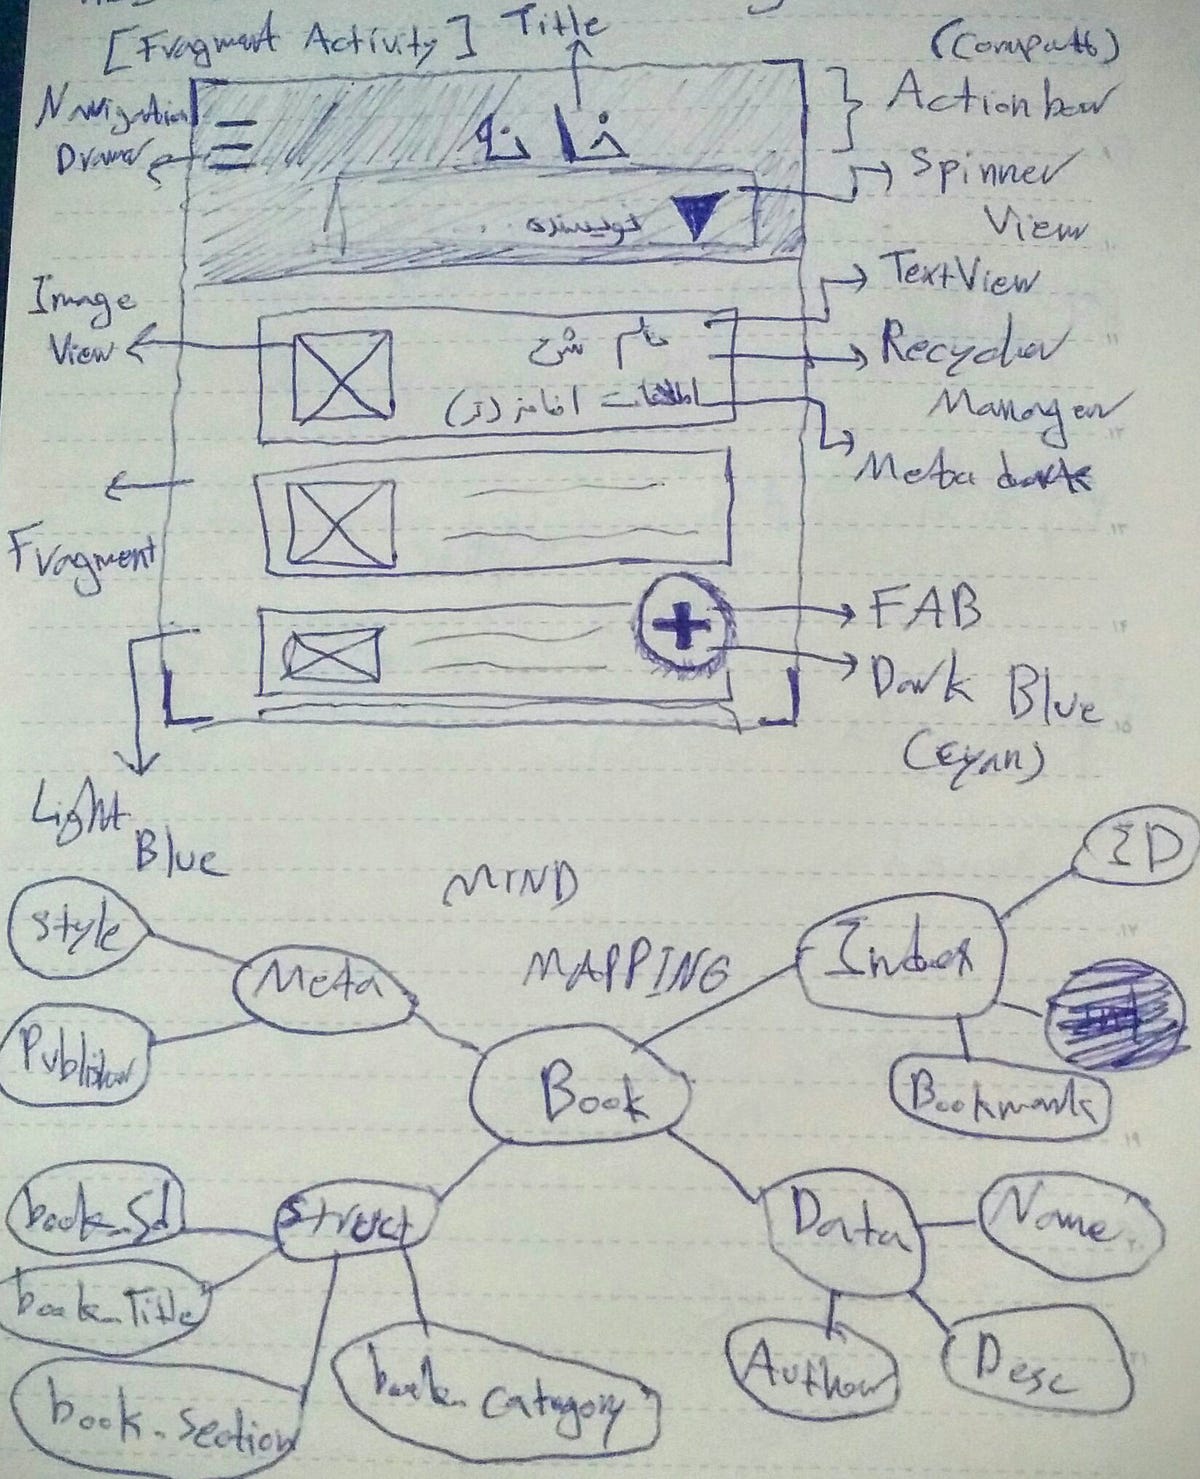 [Fragment Activity]
Title
(Compat)
Navigation
Drawer
Action bar
خانه
Spinner
View
نویسنده
TextView
Image
View
نام شرح
Recycler
Manager
اطلاعات
Meta
Fragment
FAB
Dark Blue
(Cyan)
Light
Blue
MIND
MAPPING
ID
Style
Meta
Index
Publisher
Book
Bookmark
book_Id
Struct
Data
Name
book_Title
Author
Desc
book_category
book_section